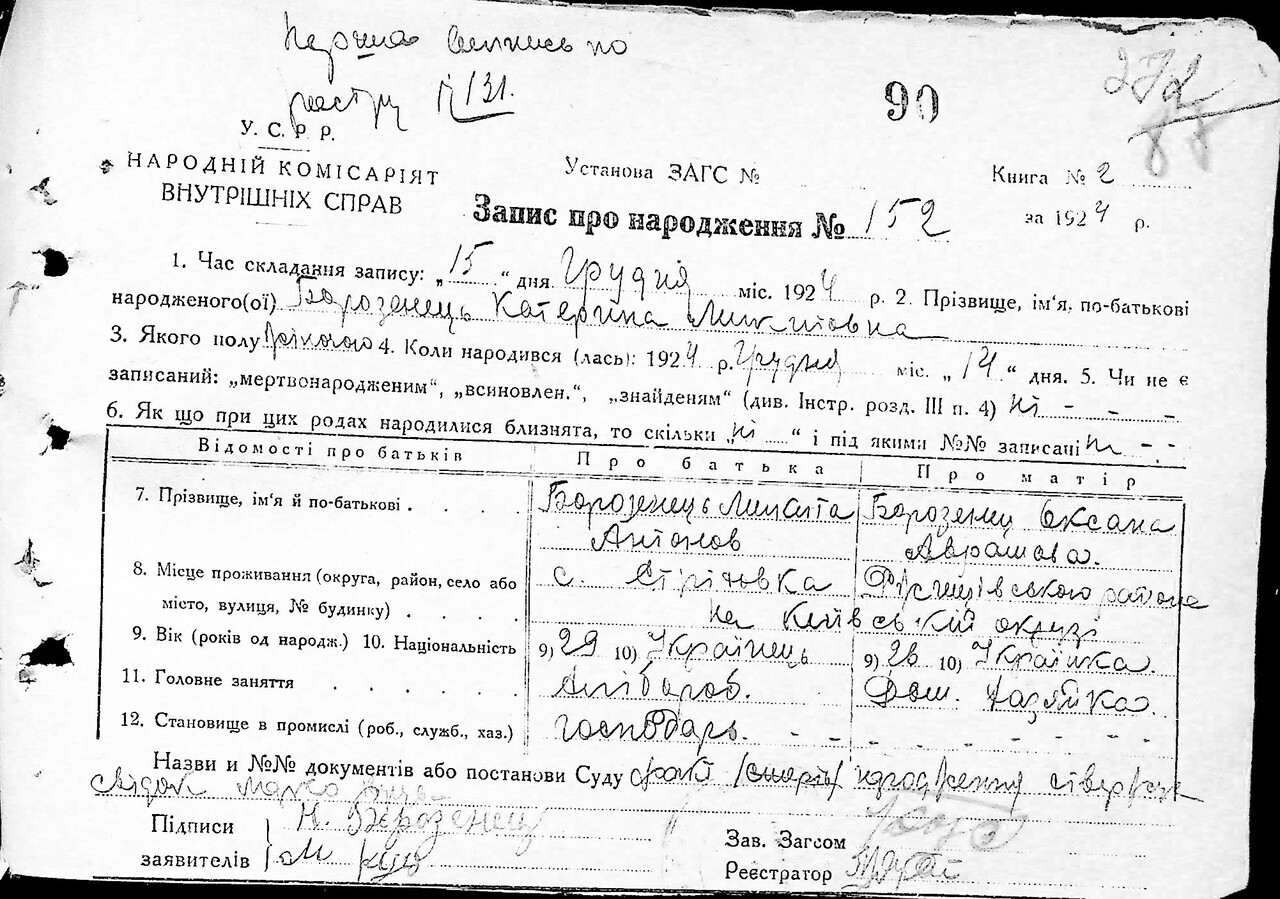 Перша випись по
реєстру № 131.
90
272
У. С. Р. Р.
НАРОДНІЙ КОМІСАРІЯТ
ВНУТРІШНІХ СПРАВ
Установа ЗАГС №
Книга № 2
Запис про народження № 152
за 1924 р.
1. Час складання запису: „15“ дня Грудня міс. 1924 р. 2. Прізвище, ім‘я, по-батькові
народженого(ої) Борозенець Катерина Микитовна
3. Якого полу жіночого 4. Коли народився (лась): 1924 р. Грудня міс. „14“ дня. 5. Чи не є
записаний: „мертвонародженим“, „всиновлен.“, „знайденям“ (див. Інстр. розд. III п. 4) ні - - -
6. Як що при цих родах народилися близнята, то скільки „ні“ і під якими №№ записані ні - -
Відомості про батьків Про батька Про матір
7. Прізвище, ім‘я й по-батькові . . . . Борозенець Микита Борозенец Оксана
Антонов Аврамова.
8. Місце проживання (округа, район, село або с. Стрітовка району
місто, вулиця, № будинку) . . . . на Київській окрузі
9. Вік (років од народж.) 10. Національність 9) 29 10) Українець 9) 26 10) Українка.
11. Головне заняття . . . . . . Хлібороб. Дом. Хазяйка.
12. Становище в промислі (роб., служб., хаз.) господарь. - - - - - - -
Назви и №№ документів або постанови Суду факт народження
свідок Марко
Підписи Н. Борозенец
заявителів
Зав. Загсом
Реєстратор